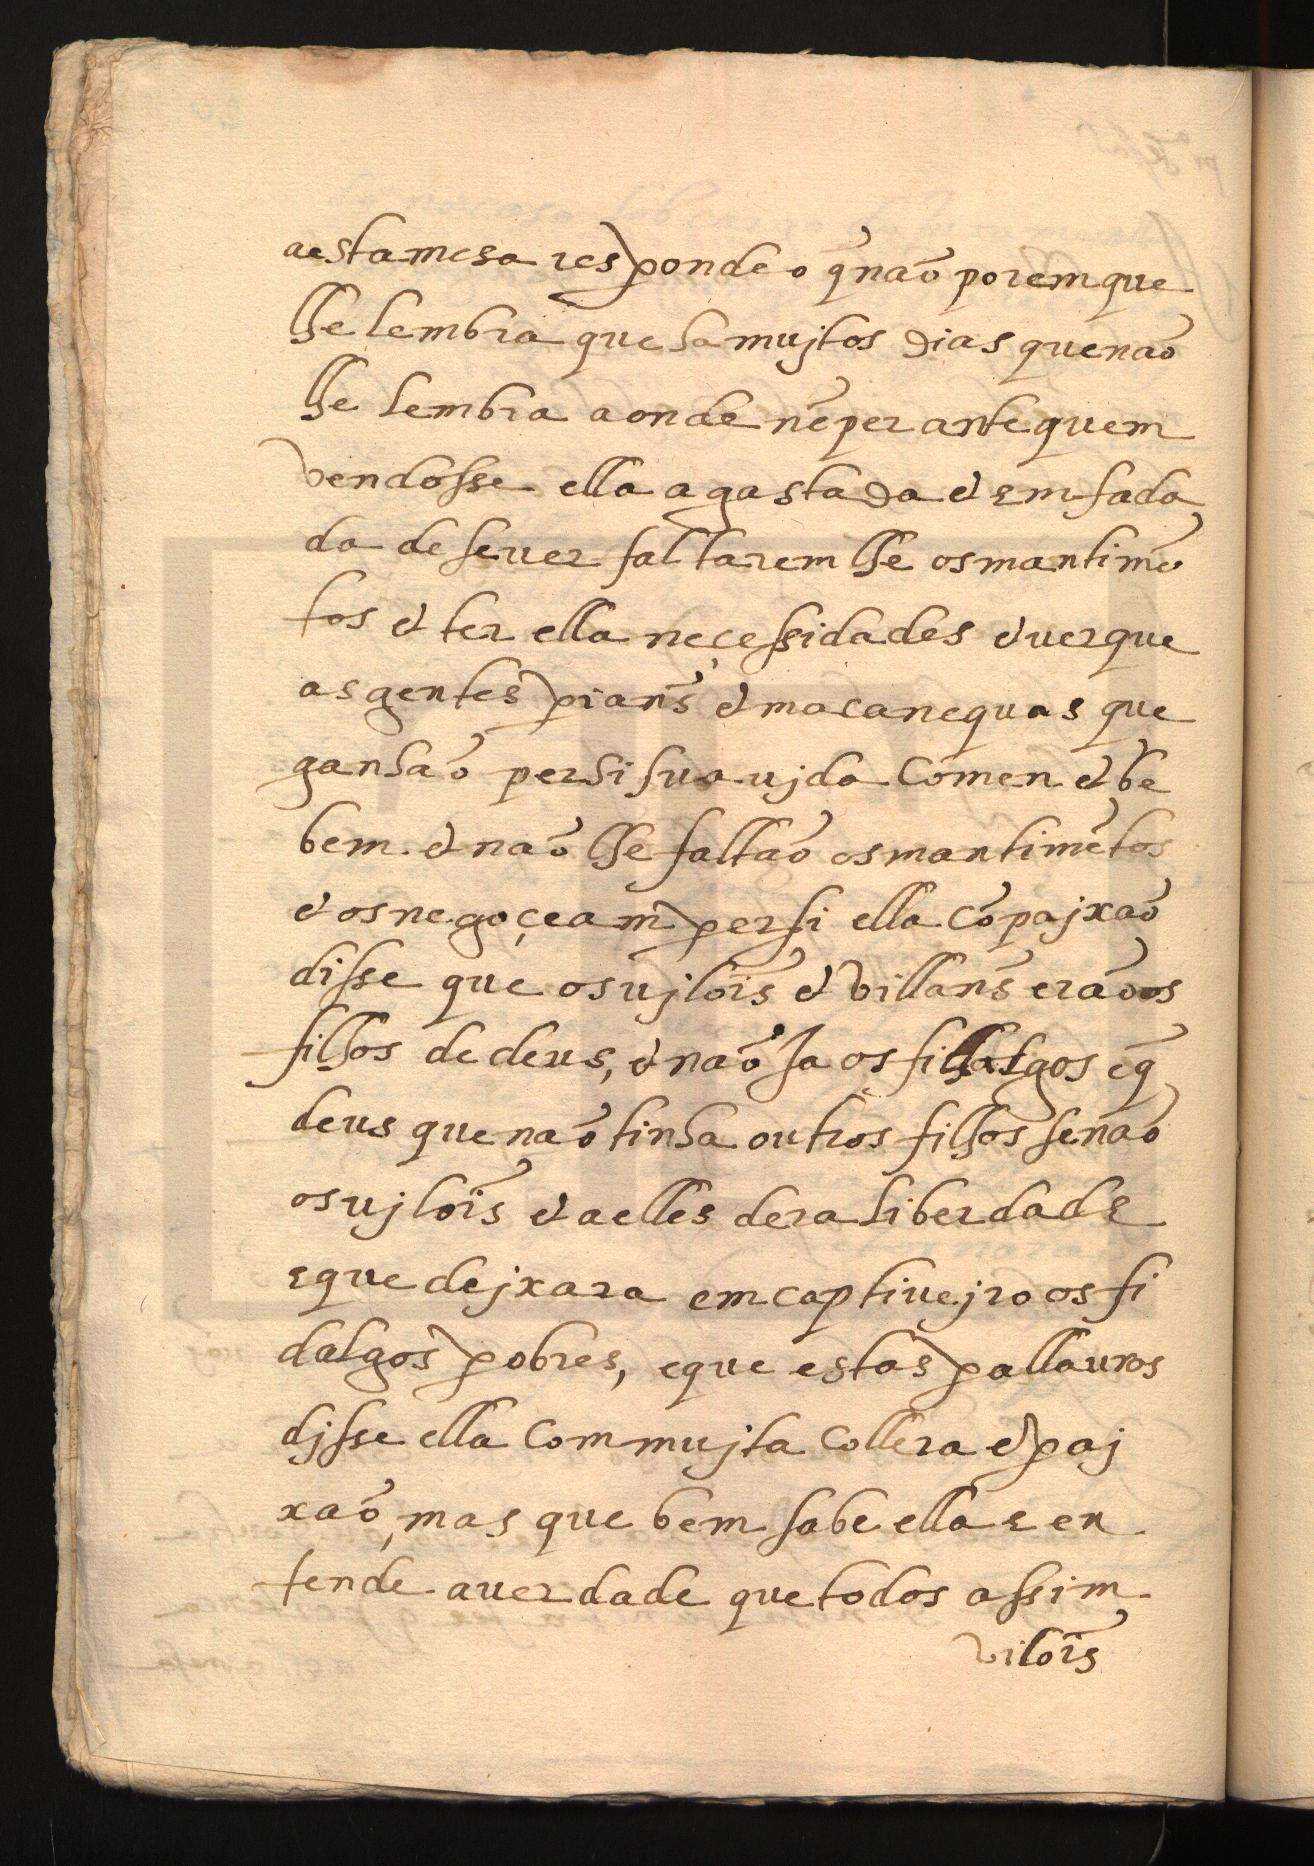 aestamesa responde o q̃ naõ porem que
lhe lembra que ha mujtos dias que naõ
lhe lembra aonde nẽ perante quem
vendosse ella agastada & emfada
da de se uer faltarem lhe os mantimẽ
tos & ter ella necessidades & uer que
as gentes pians̃ & macanequas que
ganhaõ per si sua ujda comen & be
bem. & naõ lhe faltaõ os mantimẽtos
& os negoçeam per si ella cõ pajxaõ
disse que os ujlois̃ & villans̃ eraõ os
filhos de deus, & naõ Ja os filhalgos e q̃
deus que naõ tinha outros filhos senaõ
os ujlois̃ & a elles dera liberdade
e que dejxara em captiuejro os fi
dalgos pobres, e que estas pallauras
djsse ella com mujta collera & paj
xaõ, mas que bem sabe ella e en
tende a uerdade que todos assim
vilois̃